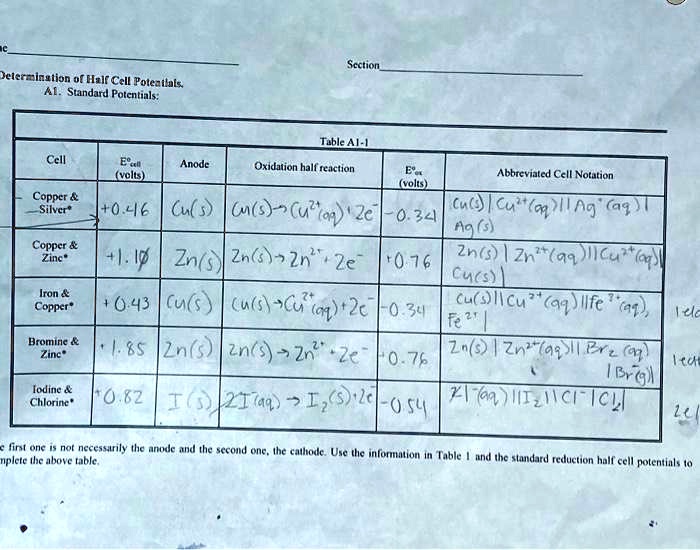 Section
Determination of Half Cell Potentials.
A1. Standard Potentials:
Table A1-1
Cell E°cell (volts) Anode Oxidation half reaction E°ox (volts) Abbreviated Cell Notation
Copper & Silver* +0.46 Cu(s) Cu(s)→Cu²⁺(aq)+2e⁻ -0.34 Cu(s)|Cu²⁺(aq)||Ag⁺(aq)|
Ag(s)
Copper & Zinc* +1.10 Zn(s) Zn(s)→Zn²⁺+2e⁻ +0.76 Zn(s)|Zn²⁺(aq)||Cu²⁺(aq)|
Cu(s)|
Iron & Copper* +0.43 Cu(s) Cu(s)→Cu²⁺(aq)+2e⁻ -0.34 Cu(s)||Cu²⁺(aq)||Fe³⁺(aq),
Fe²⁺|
Bromine & Zinc* +1.85 Zn(s) Zn(s)→Zn²⁺+2e⁻ +0.76 Zn(s)|Zn²⁺(aq)||Br₂(aq)
Iodine & Chlorine* +0.82 I(s) 2I⁻(aq)→I₂(s)+2e⁻ -0.54
first one is not necessarily the anode and the second one, the cathode. Use the information in Table 1 and the standard reduction half cell potentials to
the above table.